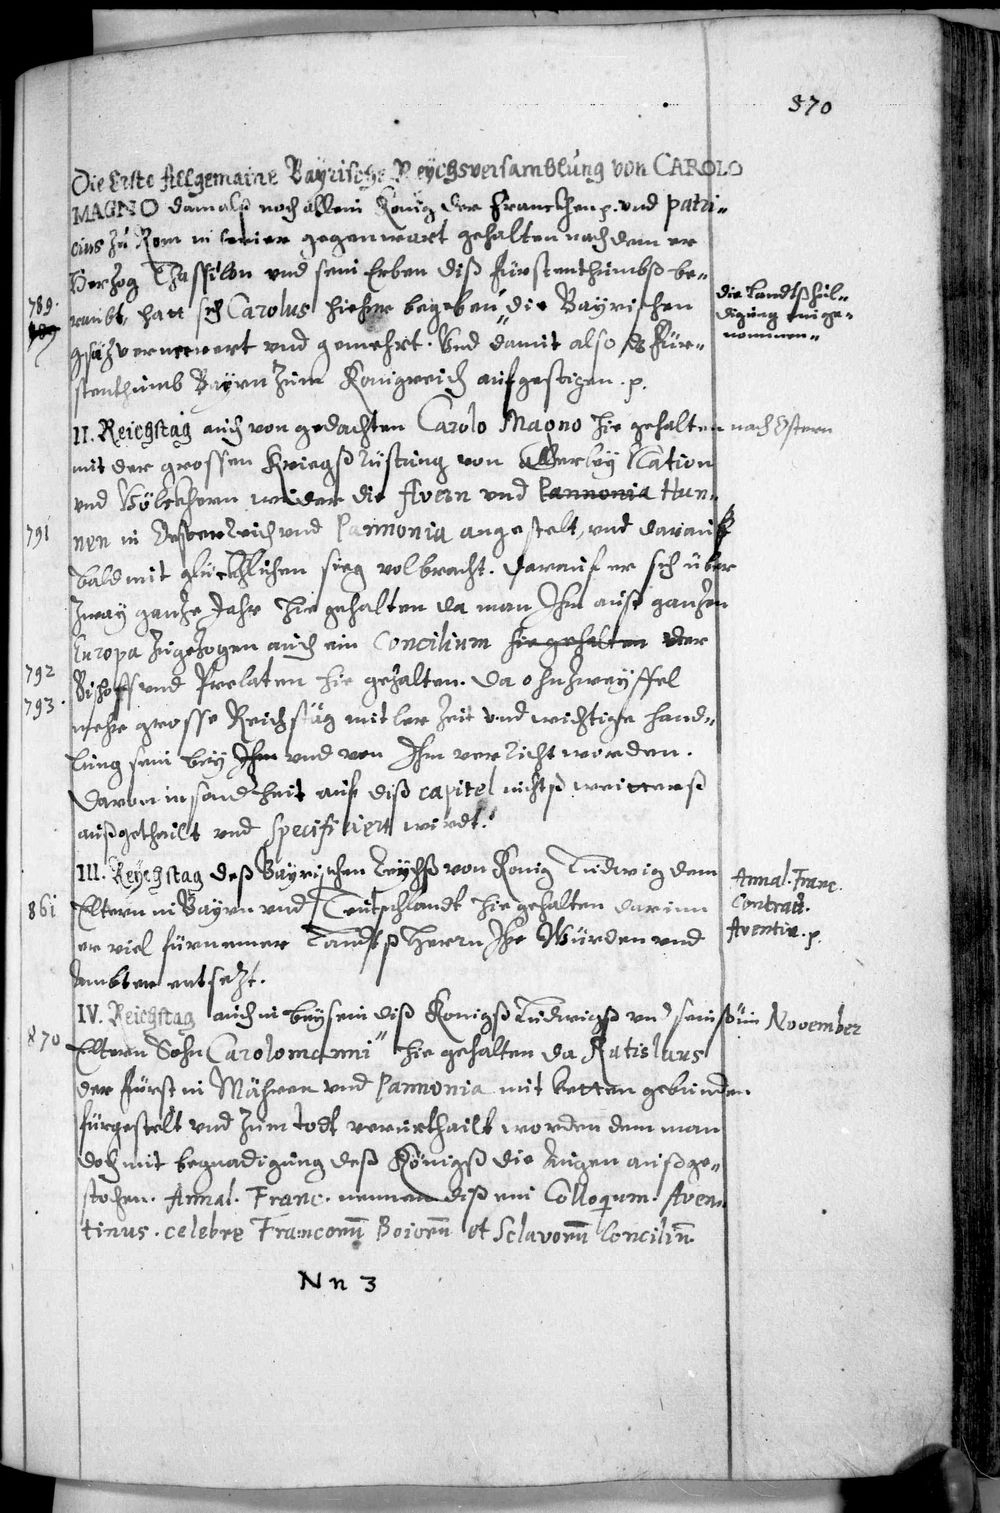 870
Die Erste Allgemaine Bayrische Reychsversamblung von CAROLO
MAGNO damalß noch allein König der Franckhen p. und patri-
cius zu Rom in seiner gegenwart gehalten nach dem er
Herzog Thassilon und sein Erben diß fürstenthumbß be-
789.
raubt, hatt sich Carolus hieher begeben die Bayrischen
die Landtßhul-
digung einge-
nommen
gsäz vernewert und gemehrt. Und damit also ds Für-
stenthumb Bayrn zum Konigreich aufgestigen. p.
II. Reichstag auch von gedachten Carolo Magno hie gehalten
nach Ostern
mit der grossen Kriegßrüstung von allerley Nation
und Völckhern wider die Avern und Pannonia Hun-
791
nen in Oesterreich und Pannonia angestelt, und darauf
bald mit glückhlichen sieg volbracht. Darauf er sich über
zway ganze Jahr hie gehalten da man Ihm auß ganzen
Europa zugezogen auch ein Concilium hie gehalten der
792
Bischoff und Prelaten hie gehalten. Da ohnzweyffel
793.
mehr grosse Reichstäg mitler Zeit und wichtige hand-
lung sein bey Ihm und von Ihm verricht worden.
Davon in sond'heit auf diß capitel nichtß weitterß
außgethailt und specificiert wirdt.
III. Reychstag deß Bayrischen Reychß von Konig Ludwig dem
Annal. Franc.
Contract.
Aventin. p.
861
Eltern in Bayrn und Teutschlandt hie gehalten darinn
er viel fürnemer Landtßherrn Ihr Würden und
Ambter entsezt.
IV. Reichstag auch in beysein diß Konigß Ludwigß und seinß
im November
870
Eltern Sohn Carolomanni hie gehalten da Ratislaus
der fürst in Mähren und Pannonia mit ketten gebunden
fürgestelt und zum todt verurthailt worden dem man
doch mit begnadigung deß Königß die Augen außge-
stochen. Annal. Franc. nennen diß ein Colloqium. Aven-
tinus. celebre Francorū Boiorū et Sclavorū Conciliū
Nn 3